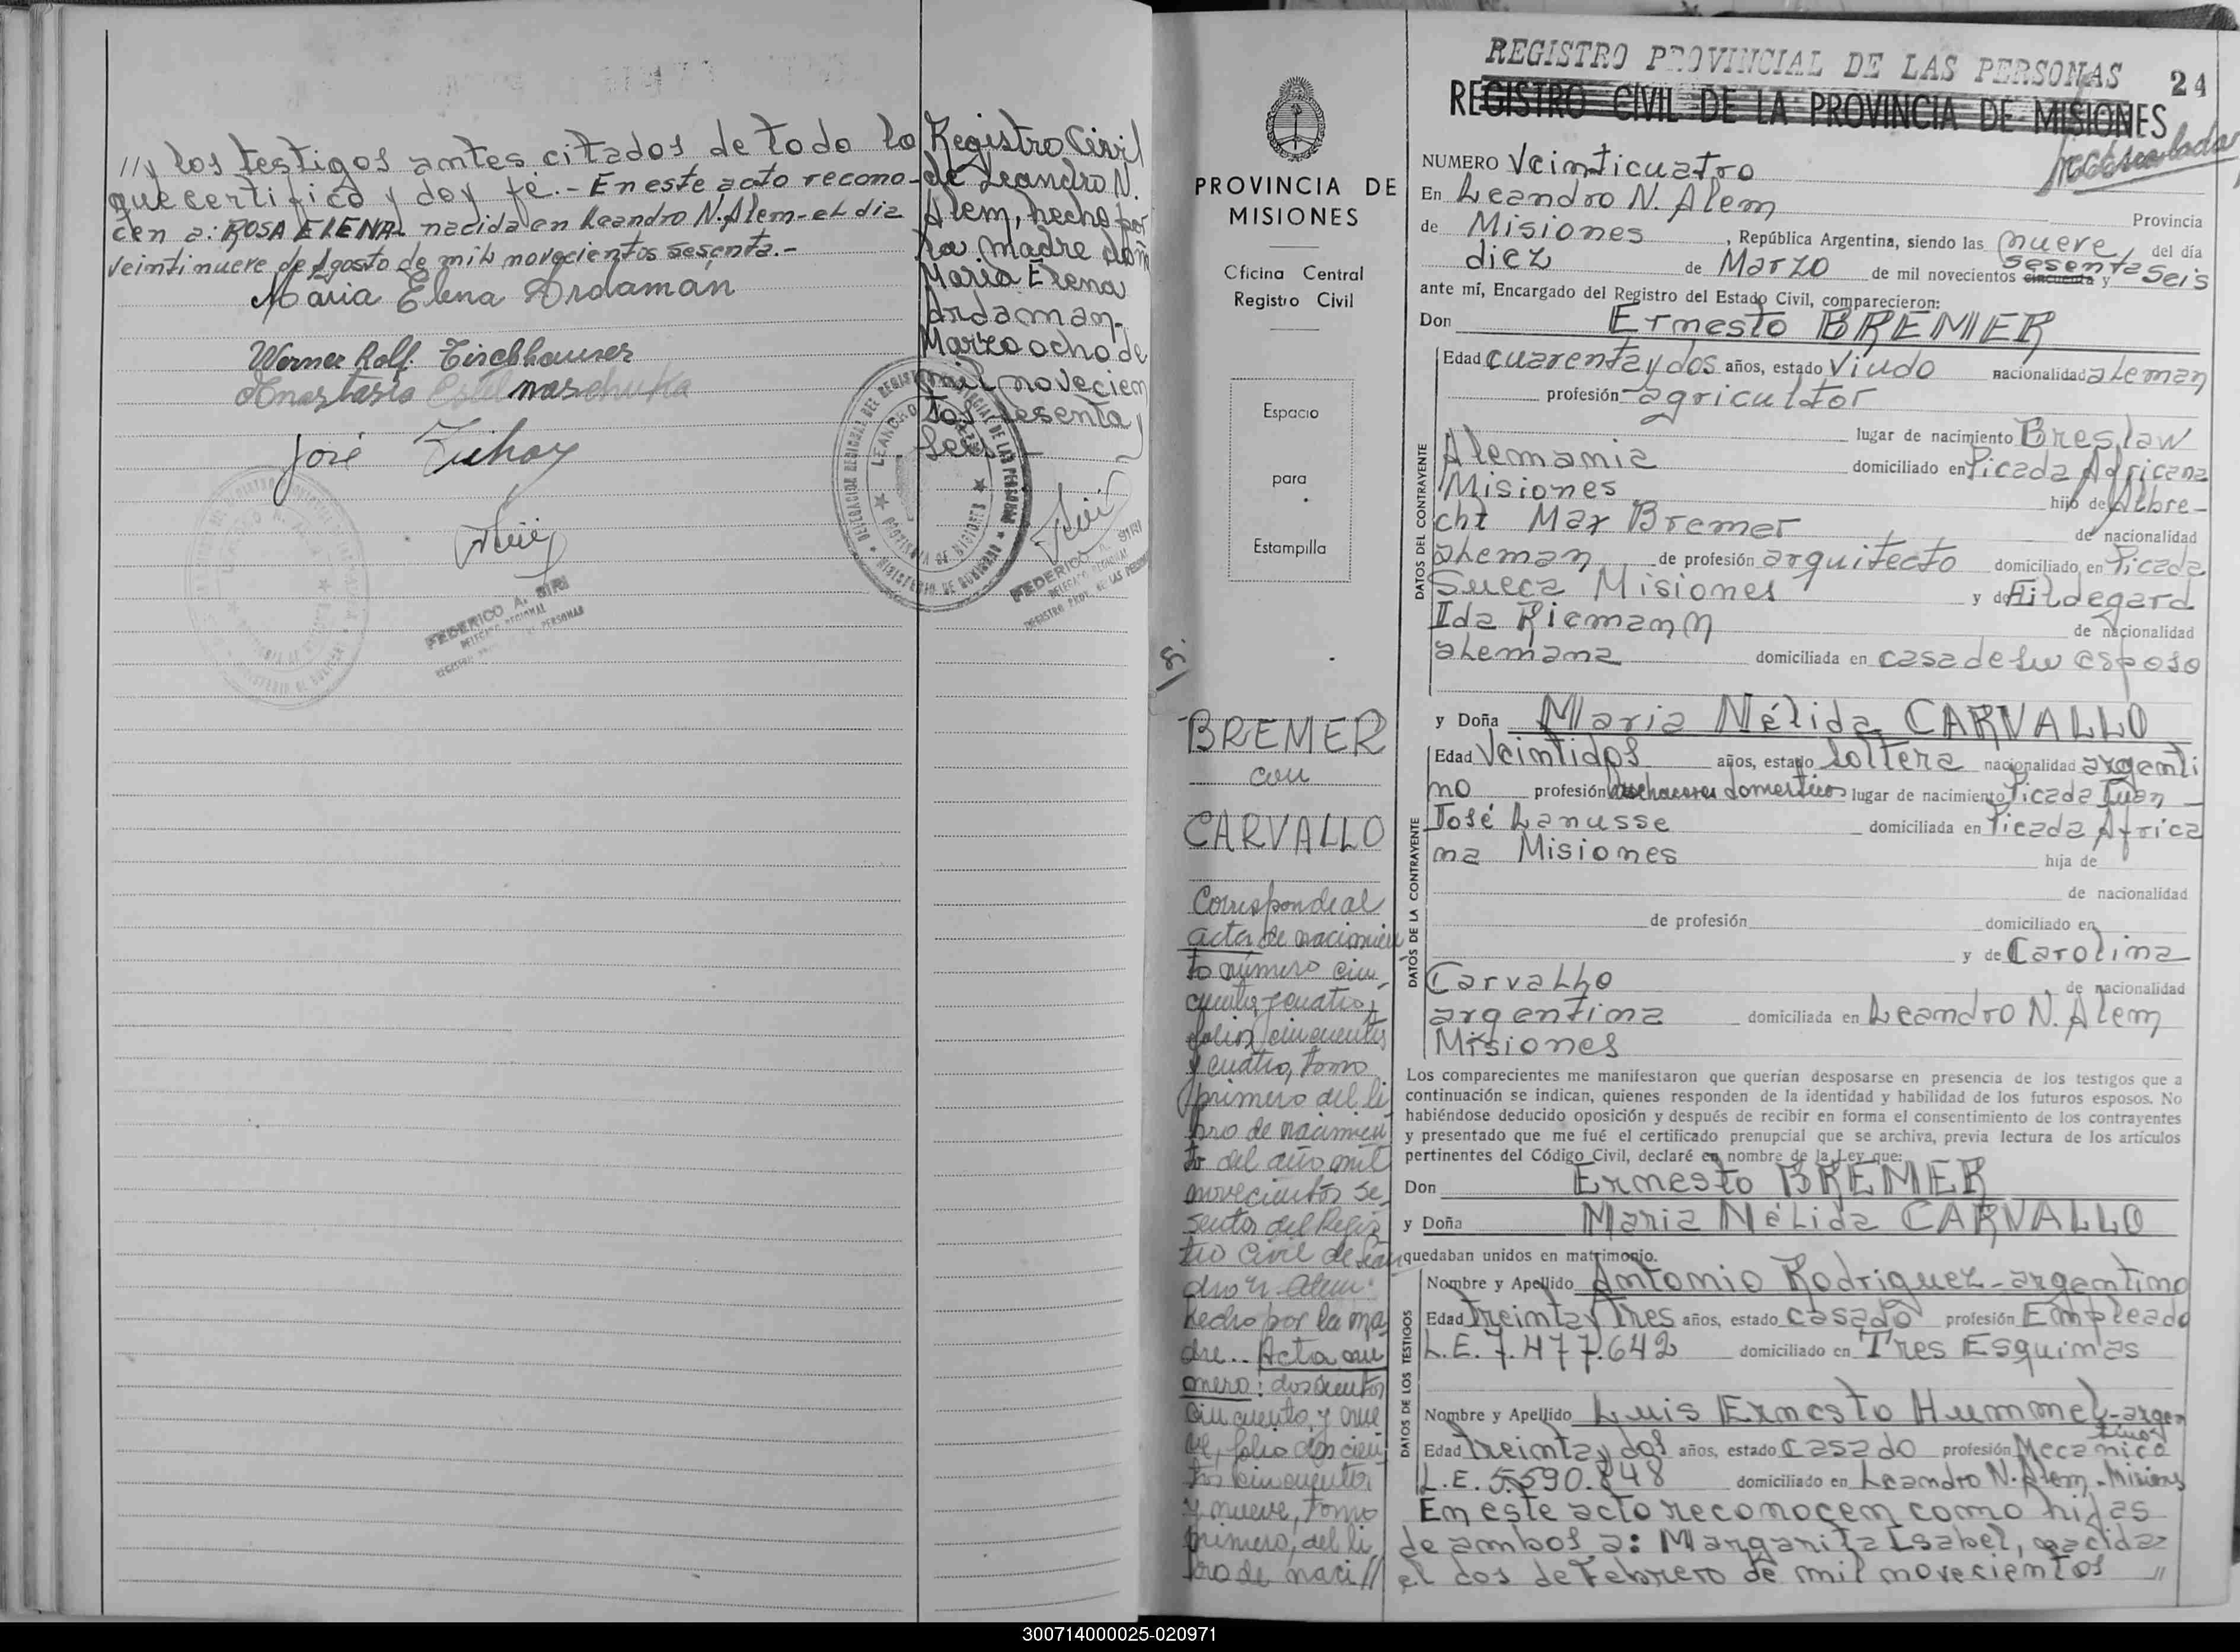 //y los testigos antes citados de todo lo
que certifico y doy fé.- En este acto recono-
cen a: ROSA ELENA- nacida en Leandro N. Alem- el dia
veintinueve de Agosto de mil novecientos sesenta.-
Maria Elena Ardaman
Werner Rolf
José
FEDERICO A. SIRI
DELEGADO REGIONAL
Registro Civil
de Leandro N.
Alem, hecho por
la madre doña
Maria Elena
Ardaman.
Marzo ocho de
mil novecien
tos sesenta y
seis.-
DELEGACION REGIONAL DEL REGISTRO PROVINCIAL DE LAS PERSONAS
LEANDRO N. ALEM
PROVINCIA DE MISIONES
MINISTERIO DE GOBIERNO
FEDERICO A. SIRI
DELEGADO REGIONAL
REGISTRO PROV. DE LAS PERSONAS
PROVINCIA DE
MISIONES
Oficina Central
Registro Civil
Espacio
para
Estampilla
BREMER
con
CARVALLO
Corresponde al
acta de nacimien
to número cin-
cuenta y cuatro,
folio cincuenta
y cuatro, tomo
primero del li
bro de nacimien
to del año mil
novecientos se-
senta del Regis
tro Civil de Lean
dro N. Alem.
hecho por la ma
dre.. Acta nu
mero: doscientos
cincuenta y nue
ve, folio doscien
tos cincuenta
y nueve, tomo
primero, del li
bro de naci//
REGISTRO PROVINCIAL DE LAS PERSONAS
24
REGISTRO CIVIL DE LA PROVINCIA DE MISIONES
NUMERO Veinticuatro
En Leandro N. Alem
Provincia
de Misiones, República Argentina, siendo las nueve, del día
diez de Marzo de mil novecientos cincuenta y sesenta seis
ante mí, Encargado del Registro del Estado Civil, comparecieron:
Don Ernesto BREMER
DATOS DEL CONTRAYENTE
Edad cuarenta y dos años, estado Viudo nacionalidad aleman
profesión agricultor
lugar de nacimiento Breslaw
Alemania domiciliado en Picada Africana
Misiones hijo de Albre-
cht Max Bremer de nacionalidad
aleman de profesión arquitecto domiciliado en Picada
Sueca Misiones y de Hildegard
Ida Riemann de nacionalidad
alemana domiciliada en casa de su esposo
y Doña Maria Nélida CARVALLO
DATOS DE LA CONTRAYENTE
Edad Veintidos años, estado soltera nacionalidad argenti
no profesión quehaceres domesticos lugar de nacimiento Picada Juan
José Lanusse domiciliada en Picada Africa
na Misiones hija de
de nacionalidad
de profesión domiciliado en
y de Carolina
Carvallo de nacionalidad
argentina domiciliada en Leandro N. Alem
Misiones
Los comparecientes me manifestaron que querían desposarse en presencia de los testigos que a
continuación se indican, quienes responden de la identidad y habilidad de los futuros esposos. No
habiéndose deducido oposición y después de recibir en forma el consentimiento de los contrayentes
y presentado que me fué el certificado prenupcial que se archiva, previa lectura de los artículos
pertinentes del Código Civil, declaré en nombre de la Ley que:
Don Ernesto BREMER
y Doña Maria Nélida CARVALLO
quedaban unidos en matrimonio.
DATOS DE LOS TESTIGOS
Nombre y Apellido Antonio Rodriguez-argentino
Edad treinta y tres años, estado casado profesión Empleado
L.E. 7.477.642 domiciliado en Tres Esquinas
Nombre y Apellido Luis Ernesto Hummel-argen
tino
Edad treinta y dos años, estado casado profesión Mecanico
L.E. 5.590.848 domiciliado en Leandro N. Alem-Misiones
En este acto reconocen como hijas
de ambos a: Margarita Isabel, nacida
el dos de Febrero de mil novecientos //
300714000025-020971